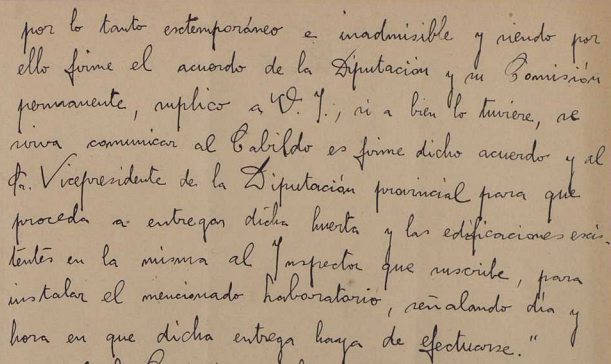 por lo tanto extemporáneo e inadmisible y siendo por
ello firme el acuerdo de la Diputación y su Comisión
permanente, suplico a V. I., si a bien lo tuviere, se
sirva comunicar al Cabildo es firme dicho acuerdo y al
Sr. Vicepresidente de la Diputación provincial para que
proceda a entregar dicha huerta y las edificaciones exis-
tentes en la misma al Inspector que suscribe, para
instalar el mencionado Laboratorio, señalando día y
hora en que dicha entrega haya de efectuarse."